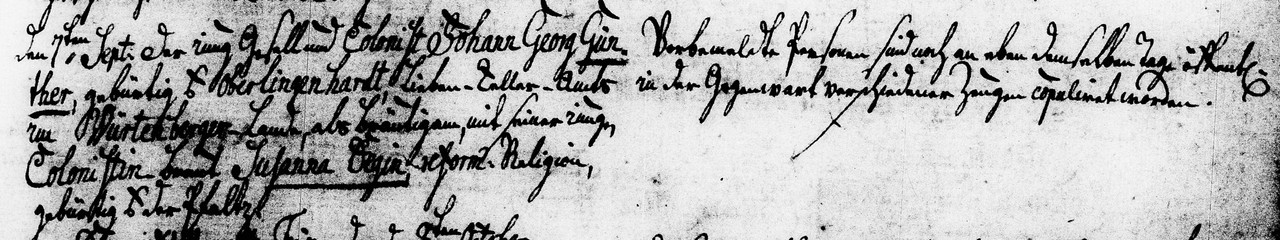 den 7ten Sept. der jung Gesell und Colonist Johann Georg Gün-
ther, gebürtig v Oberlingenhardt, Lieben-Zeller-Amts
im Würtenberger Lande, als Bräutigam, mit seiner jungen
Colonistin braut Susanna reform. Religion,
gebürtig v der Pfaltz.
Vorbemeldte Personen sind noch an eben demselben Tage öffentl.
in der Gegenwart verschiedener Zeugen copuliret worden.